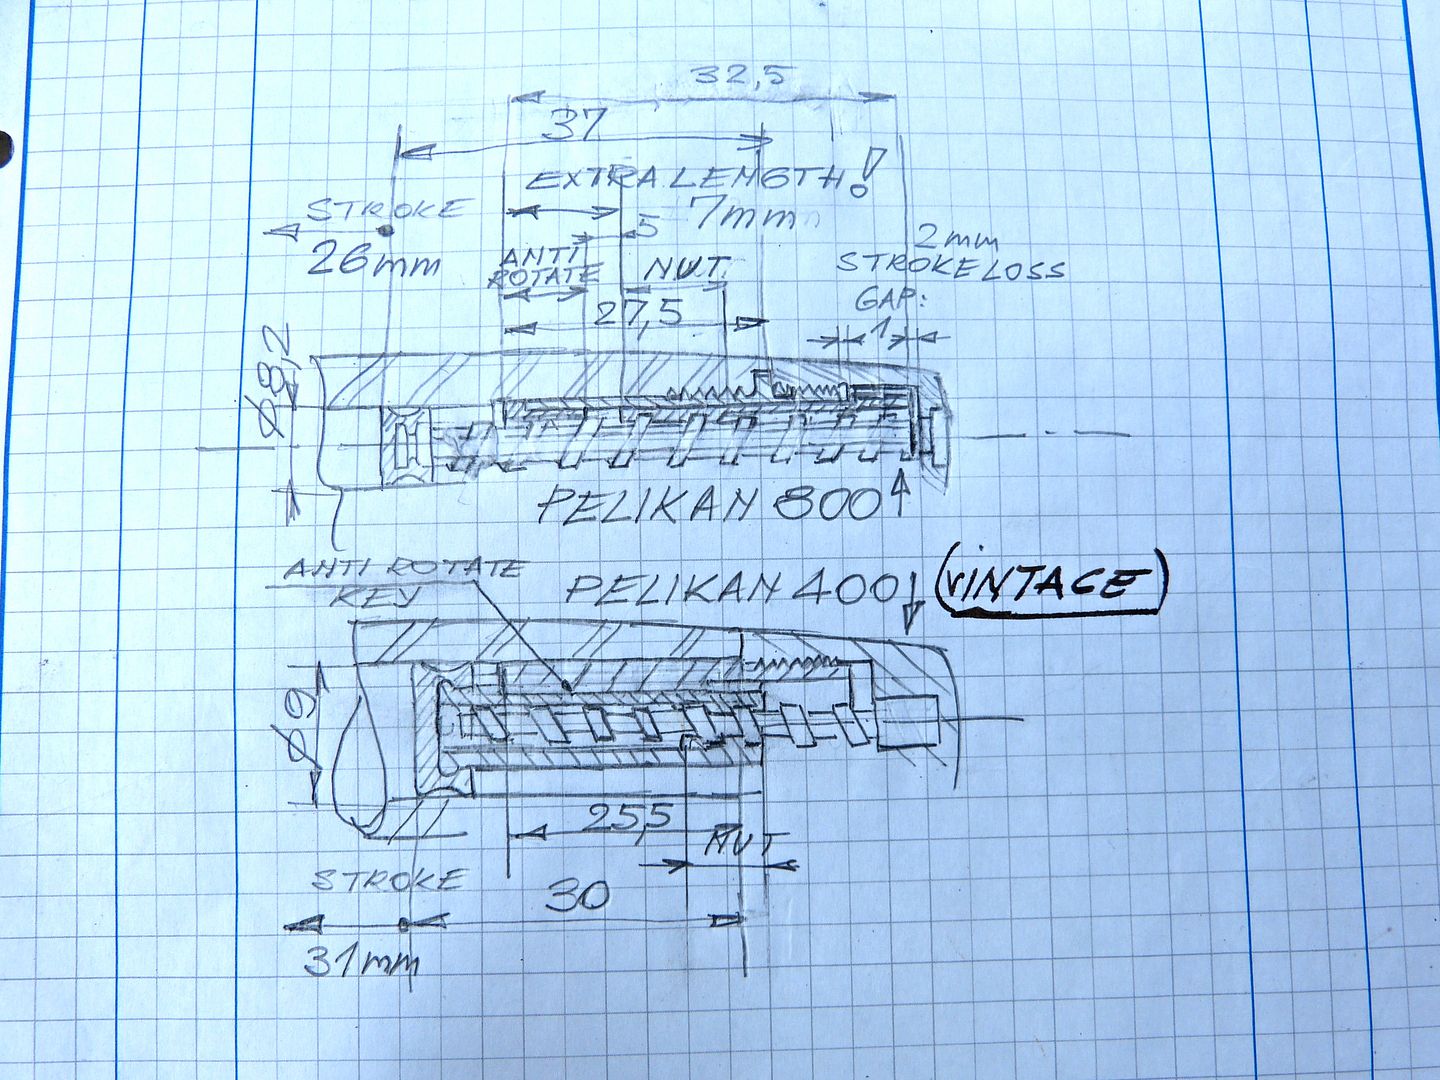 32,5
37
EXTRA LENGTH!
7mm
STROKE
26mm
5
ANTI
ROTATE
NUT
27,5
2mm
STROKE LOSS
GAP:
1
ϕ8,2
PELIKAN 800
ANTI ROTATE
KEY
PELIKAN 400 (VINTAGE)
ϕ9
25,5
NUT
STROKE
30
31mm